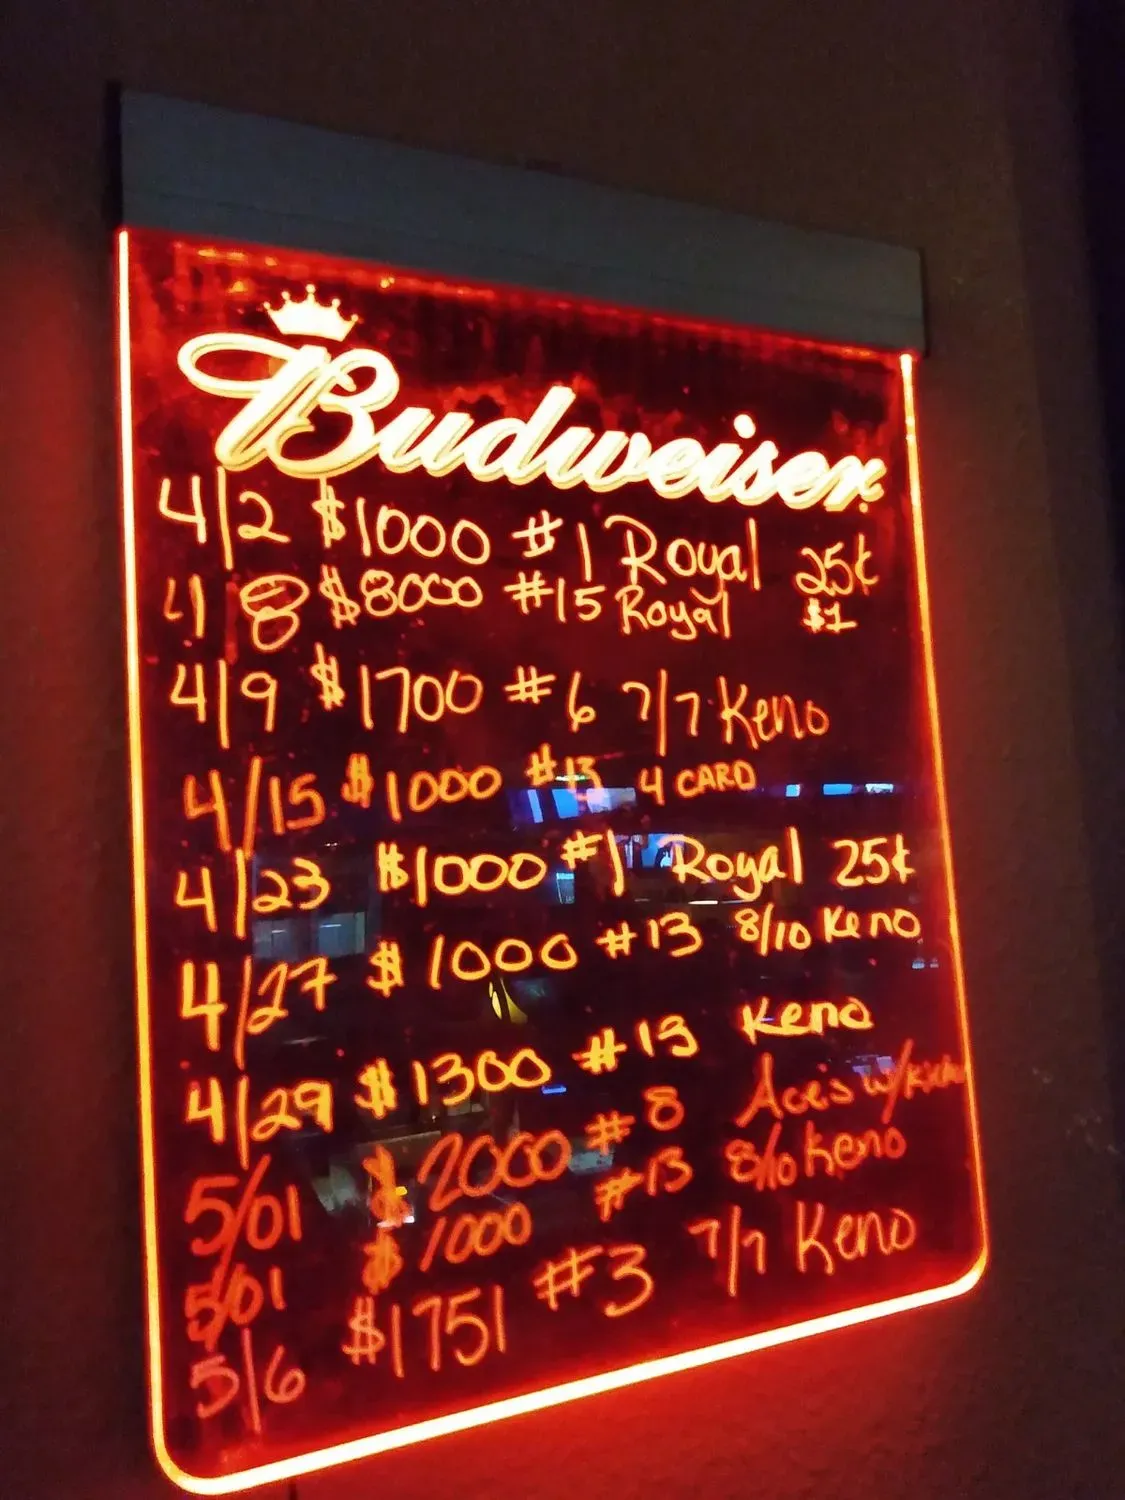 Budweiser
4/2 $1000 #1 Royal 25¢
4/8 $8000 #15 Royal $1
4/9 $1700 #6 7/7 Keno
4/15 $1000 #13 4 CARD
4/23 $1000 #1 Royal 25¢
4/27 $1000 #13 8/10 Keno
4/29 $1300 #13 Keno
5/01 $2000 #8 Aces w/
5/01 $1000 #13 8/10 Keno
5/6 $1751 #3 7/7 Keno